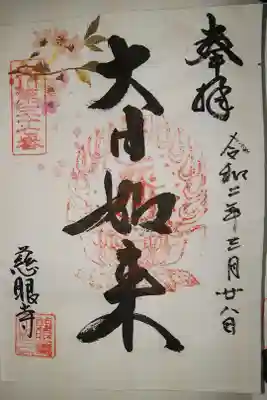 奉拝
令和二年三月廿八日
大日如来
慈眼寺